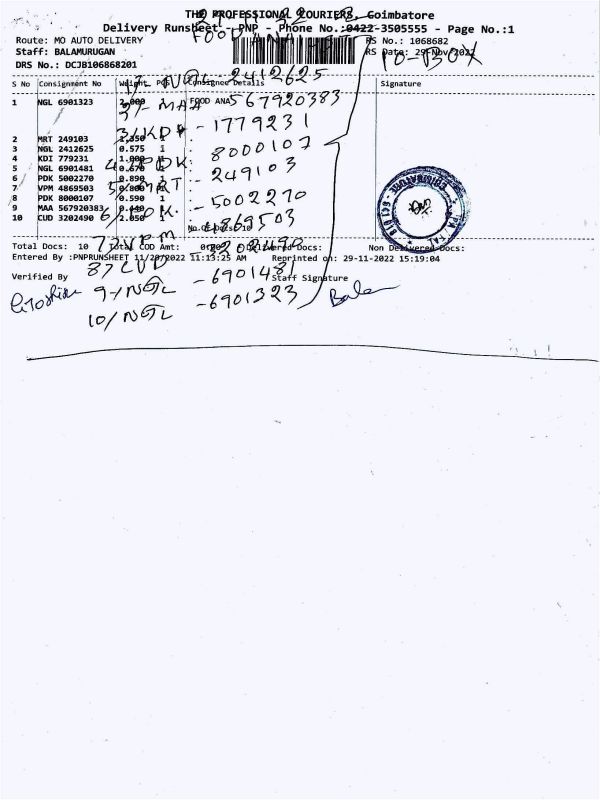 THE PROFESSIONAL COURIERS, Coimbatore
Delivery Runsheet - PNP - Phone No.:0422-3505555 - Page No.:1
Route: MO AUTO DELIVERY
RS No.: 1068682
Staff: BALAMURUGAN
RS Date: 29-Nov-2022
10-BOX
DRS No.: DCJB106868201
S No Consignment No Weight Pcs Consignee Details Signature
1 NGL 6901323 2.000 FOOD ANA
2 MRT 249103 1.350 1
3 NGL 2412625 0.575 1
4 KDI 779231 1.000
5 NGL 6901481 0.670 1
6 PDK 5002270 0.890
7 VPM 4869503 0.800
8 PDK 8000107 0.590 1
9 MAA 567920383 1
10 CUD 3202490 2.050 1
No.Of Docs: 10
Total Docs: 10 Total COD Amt: Delivered Docs: Non Delivered Docs:
Entered By :PNPRUNSHEET 11/29/2022 11:13:25 AM Reprinted on: 29-11-2022 15:19:04
Verified By Staff Signature
1/- NGL - 2412625
2/- MAA 567920383
3/ KDI - 1779231
4/ PDK - 8000107
5/ MRT - 249103
6/ PDK - 5002270
7/ VPM - 4869503
8/ CUD 3202490
9/ NGL - 6901481
10/ NGL - 6901323
Bala